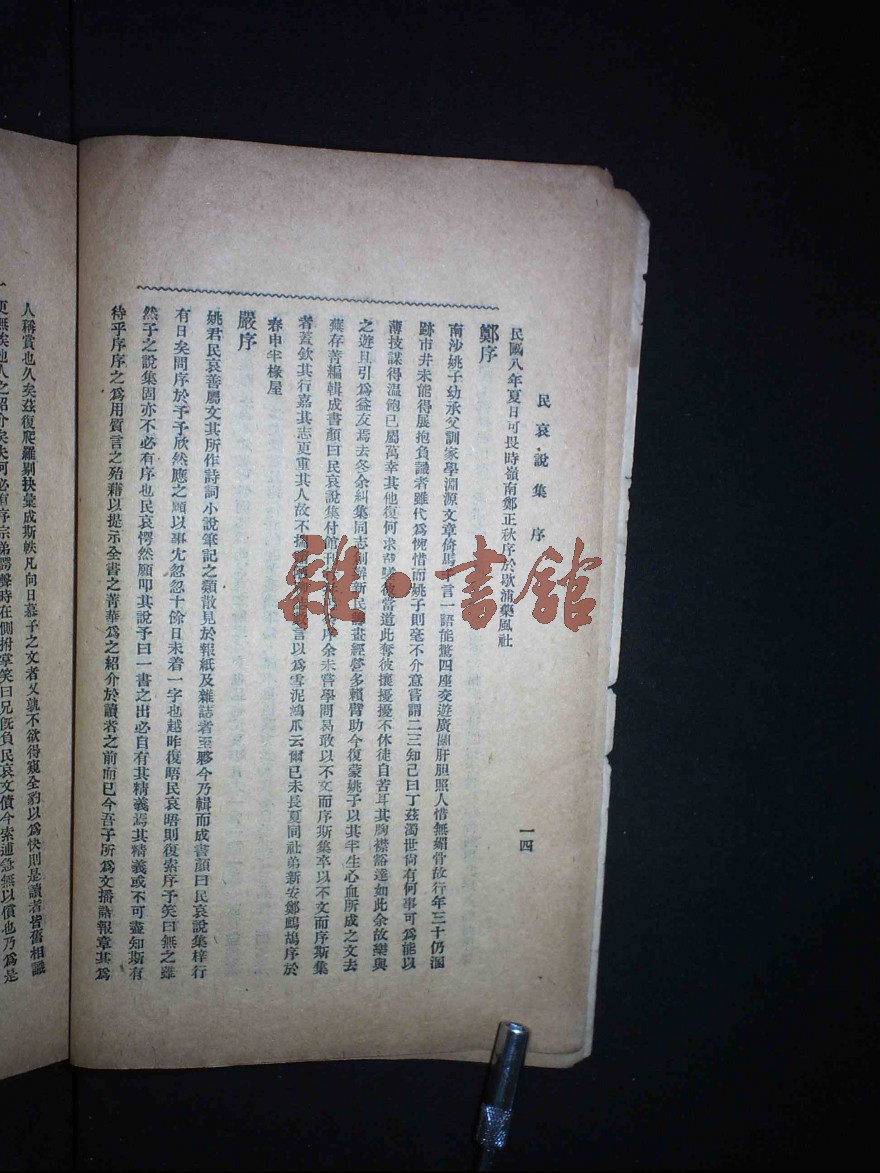 民哀說集序
一四
民國八年夏日可長時嶺南鄭正秋序於歇浦藥風社
鄭序
南沙姚子幼承父訓家學淵源文章倚馬言一語能驚四座交遊廣闊肝胆照人惜無媚骨故行年三十仍溷
跡市井未能得展抱負識者雖代為惋惜而姚子則毫不介意嘗謂二三知己曰丁茲濁世尙有何事可為能以
薄技謀得溫飽已屬萬幸其他復何求彼當道此奪彼攘擾擾不休徒自苦耳其胸襟豁達如此余故樂與
之遊且引為益友焉去冬余糾集同志創辦新民畫經營多賴臂助今復蒙姚子以其半生心血所成之文去
蕪存菁編輯成書顏曰民哀說集付館刊序余未嘗學問曷敢以不文而序斯集卒以不文而序斯集
者蓋欽其行嘉其志更重其人故不言以為雪泥鴻爪云爾已未長夏同社弟新安鄭鷓鴣序於
春申半椽屋
嚴序
姚君民哀善屬文其所作詩詞小說筆記之類散見於報紙及雜誌者至夥今乃輯而成書顏曰民哀說集梓行
有日矣問序於予予欣然應之顧以事冗忽忽十餘日未着一字也越昨復晤民哀晤則復索序予笑曰無之雖
然子之說集固亦不必有序也民哀愕然願叩其說予曰一書之出必自有其精義焉其精義或不可盡知斯有
待乎序序之為用質言之殆藉以提示全書之菁華為之紹介於讀者之前而已今吾子所為文播諸報章其為
人稱賞也久矣茲復爬羅剔抉彙成斯帙凡向日慕子之文者又孰不欲得窺全豹以為快則是讀者皆舊相識
更無俟他人之紹介矣夫何必有序宗弟諤聲時在側拊掌笑曰兄旣負民哀文債今索逋急無以償也乃為是
雜·書館